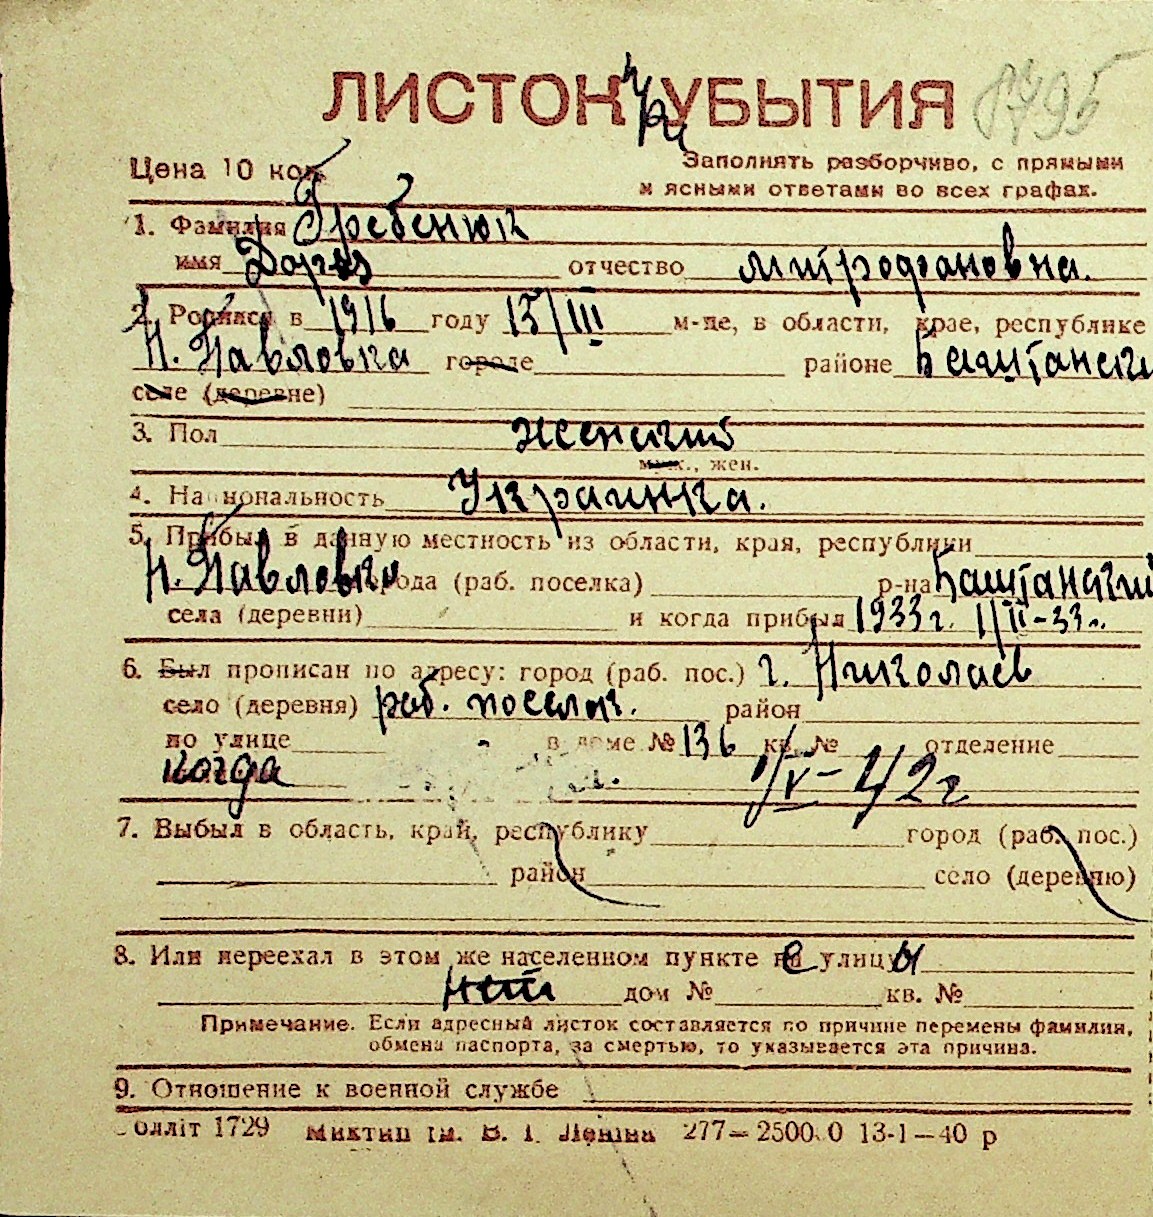 ЛИСТОК УБЫТИЯ
Цена 10 коп.
Заполнять разборчиво, с прямыми
и ясными ответами во всех графах.
1. Фамилия Гребенюк
имя отчество Митрофановна.
2. Родился в 1916 году 15/III м-це, в области, крае, республике
Н. Павловка городе районе Баштанский
селе (деревне)
3. Пол женский
муж., жен.
4. Национальность Украинка.
5. Прибыл в данную местность из области, края, республики
Н. Павловка города (раб. поселка) р-на Баштанский
села (деревни) и когда прибыл 1933 г. 1/II-33 г.
6. Был прописан по адресу: город (раб. пос.) г. Николаев
село (деревня) раб. поселок. район
по улице в доме № 136 кв. № отделение
когда 1/V-42 г
7. Выбыл в область, край, республику город (раб. пос.)
район село (деревню)
8. Или переехал в этом же населенном пункте с улицы
нет дом № кв. №
Примечание. Если адресный листок составляется по причине перемены фамилии,
обмена паспорта, за смертью, то указывается эта причина.
9. Отношение к военной службе
олліт 1729 277—2500 0 13-1—40 р